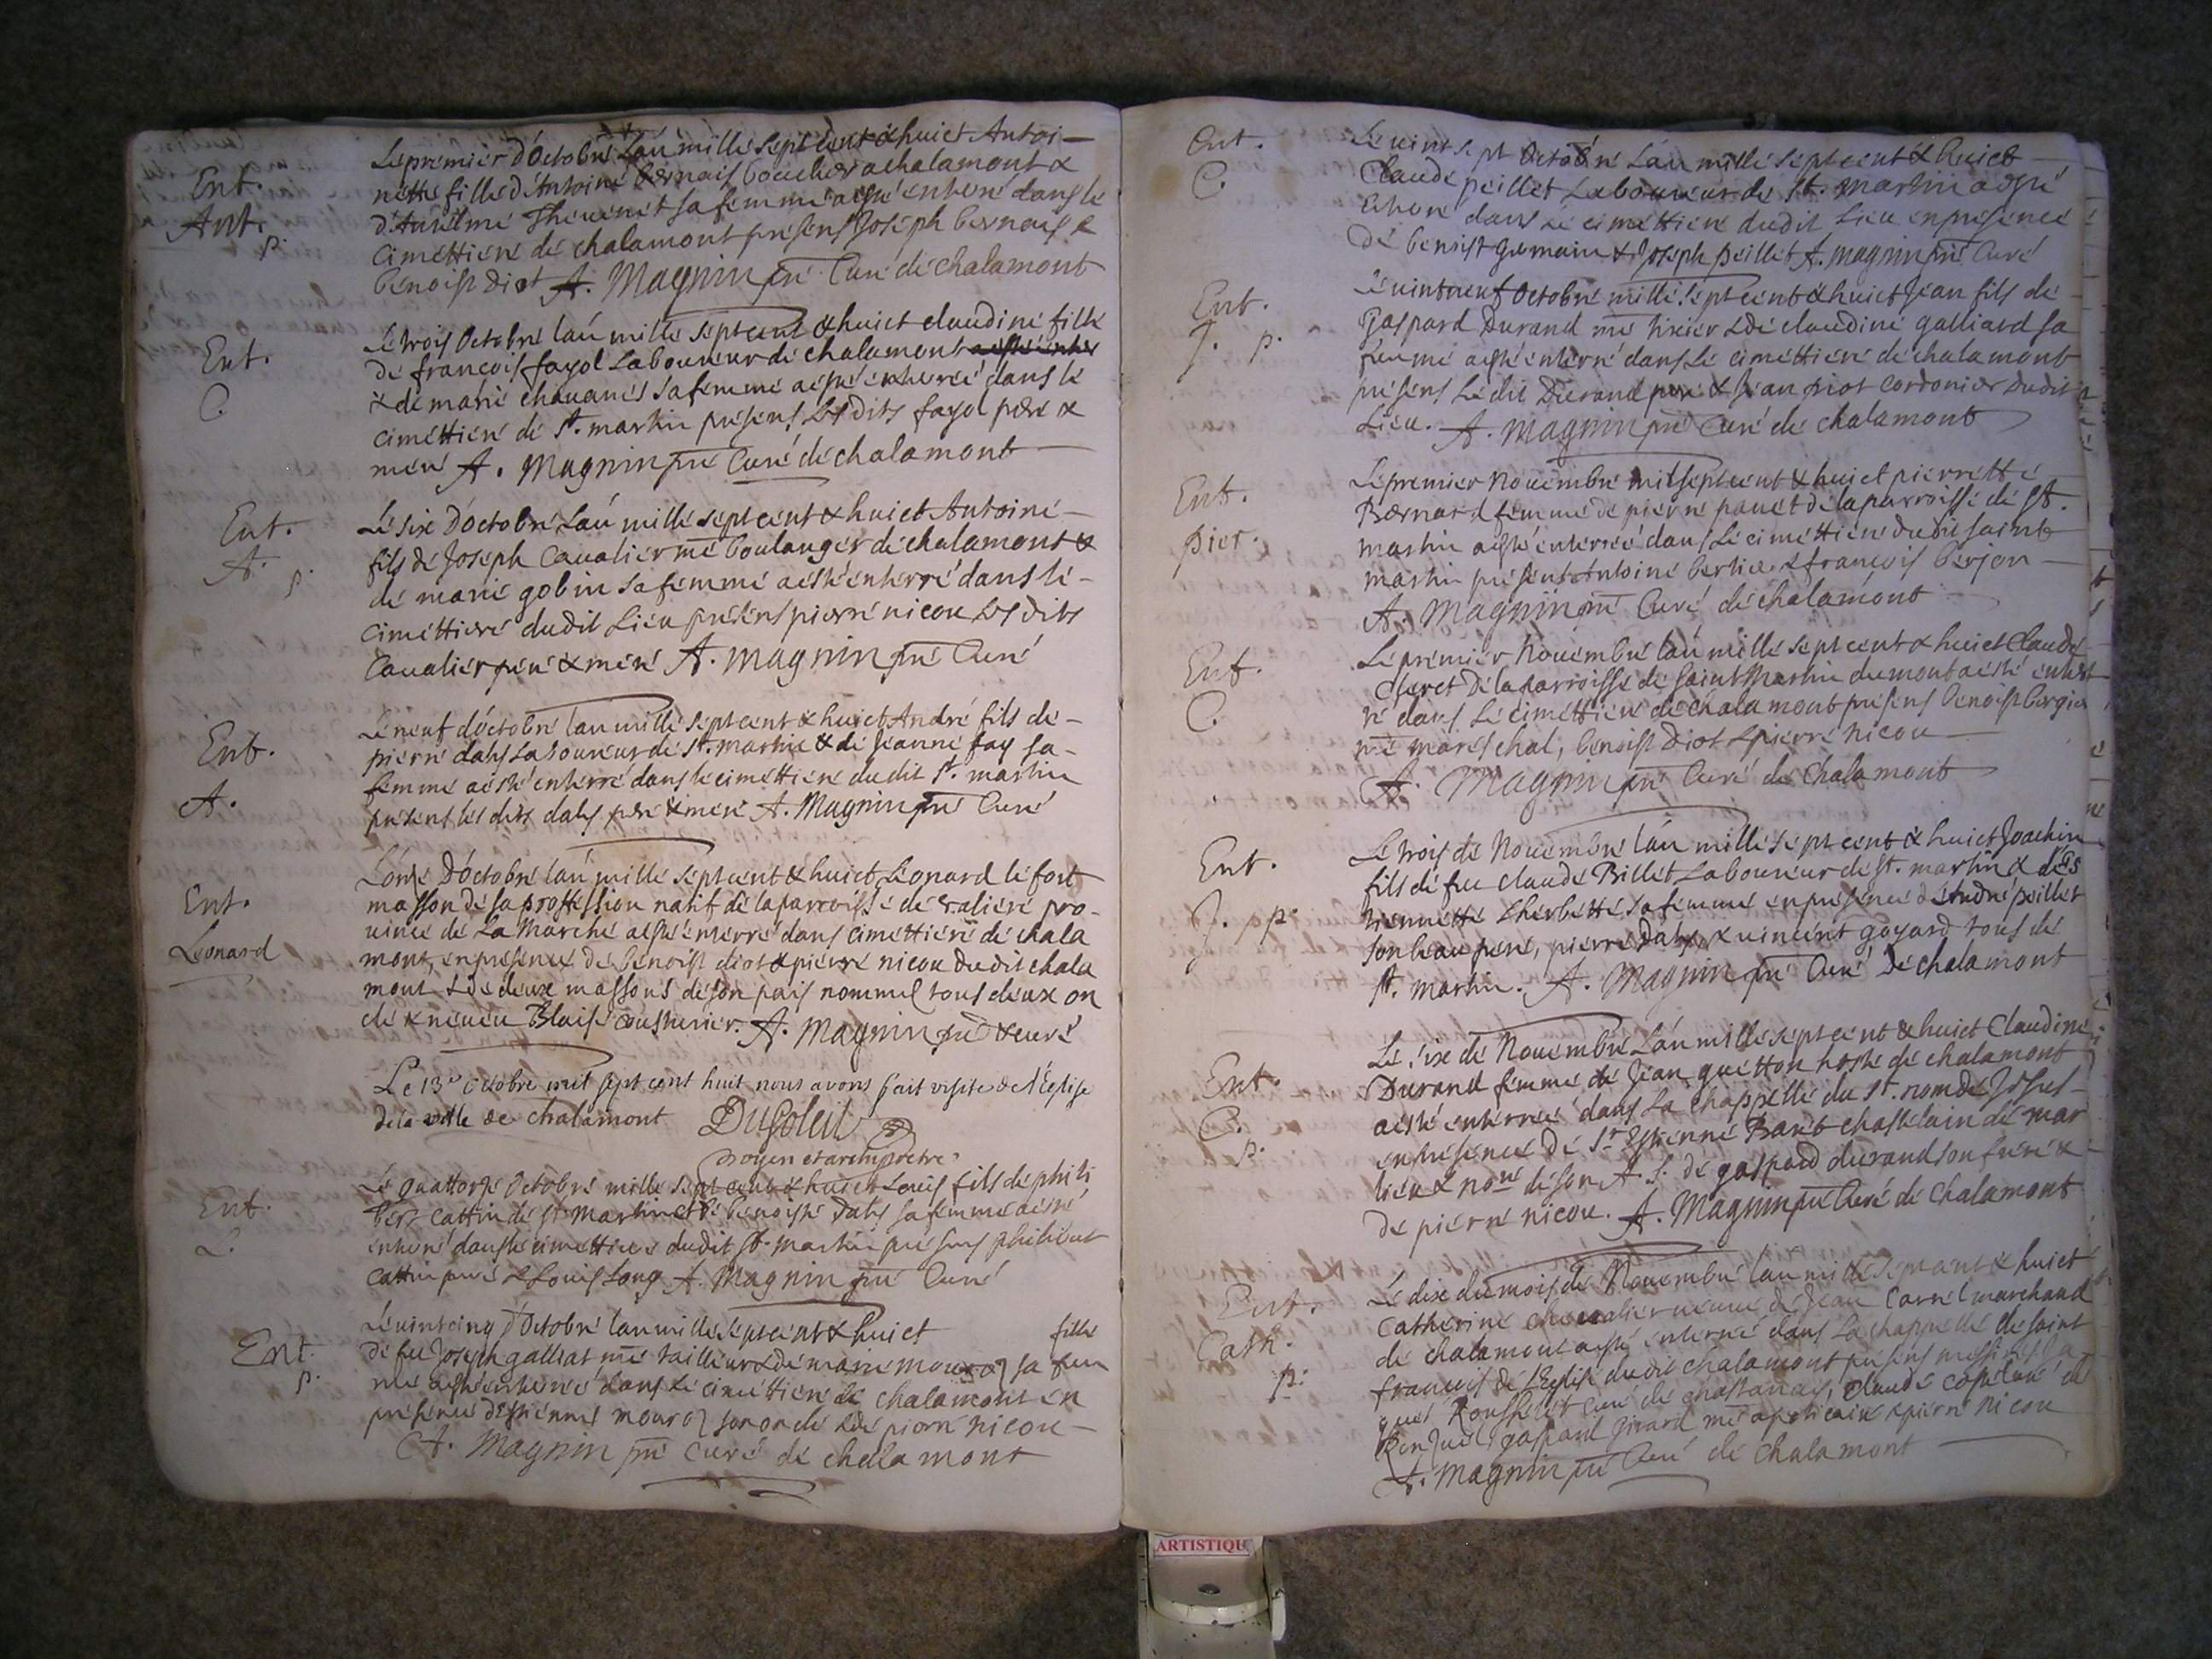 Ent.
Ant.
p.
Le premier d'Octobre L'an mille sept cent & huict Antoi-
nette fille d'Antoine bernais boucher a chalamont &
d'Anselme Theuenet sa femme a esté enterré dans le
cimettiere de chalamont presens Joseph bernais &
benoist diot A. Magnin pre Curé de chalamont
Ent.
C.
Le trois Octobre l'an mille sept cent & huict claudine fille
de francois fayol Laboureur de chalamont a esté enter
& de marie chauanes sa femme a esté enterreé dans le
cimettiere de St. martin presens Les dits fayol pere &
mere A. Magnin pre Curé de chalamont
Ent.
A. p.
Le six d'octobre L'an mille sept cent & huict Antoine
fils de Joseph Caualier me boulanger de chalamont &
de marie gobin sa femme a esté enterré dans le
cimettiere dudit Lieu presens pierre nicou Les dits
Caualier pere & mere A. Magnin pre Curé
Ent.
A.
Le neuf d'octobre l'an mille sept cent & huict André fils de
pierre dalys Laboureur de St. martin & de Jeanne fay sa
femme a esté enterré dans le cimettiere dudit St. martin
presens les dits dalys pere & mere A. Magnin pre Curé
Ent.
Leonard
L'onze D'octobre l'an mille sept cent & huict Leonard le fort
masson de sa proffession natif de la parroisse de pro-
uince de La Marche a esté enterré dans cimettiere de chala
mont, en presence de benoist diot & pierre nicou dudit chala
mont & de deux massons de son pais nommes tous deux on
cle & neueu Blaise cousturier. A. Magnin pre & curé
Le 13e octobre mil sept cent huit nous avons fait visite de l'Eglise
de la ville de chalamont DuSoleil
Doyen et archiprêtre
Ent.
L.
Le quattorze Octobre mille sept cent & huict Louis fils de phili
bert cattin de St martin et de benoiste dalys sa femme a esté
enterré dans le cimettiere dudit St. martin presens philibert
cattin pere & Louis Long A. Magnin pre Curé
Ent.
p.
Le vint cinq d'Octobre l'an mille sept cent & huict fille
de feu Joseph galliat me tailleur & de marie mouroz sa fem
me a esté enterreé dans Le cimettiere de chalamont en
presence d'Estienne mouroz son oncle & de pierre nicou
A. Magnin pre Curé de chalamont
Ent.
C.
Le vint sept Octobre L'an mille sept cent & huict
Claude peillet Laboureur de St. martin a esté
enterré dans le cimettiere dudit Lieu en presence
de benoist germain & Joseph peillet A. Magnin pre Curé
Ent.
J. p.
Le vint neuf Octobre mille sept cent & huict Jean fils de
Gaspard Durand me & de claudine galliard sa
femme a esté enterré dans Le cimettiere de chalamont
presens Le dit Durand pere & Jean cordonier dudit
Lieu. A. Magnin pre Curé de chalamont
Ent.
pier.
Le premier Nouembre mil sept cent & huict pierrette
Bernard femme de pierre pauet de la parroisse de St.
martin a esté enterreé dans Le cimettiere dudit saint
martin presens Antoine & francois berjon
A. Magnin pre Curé de chalamont
Ent.
C.
Le premier Nouembre l'an mille sept cent & huict Claude
Cleret De la parroisse de saint Martin du mont a esté enter
ré dans Le cimettiere de chalamont presens benoist bergier
me mareschal, benoist Diot & pierre Nicou
A. Magnin pre Curé de chalamont
Ent.
J. p.
Le trois de Nouembre l'an mille sept cent & huict Joachin
fils de feu claude Billet Laboureur de St. martin & d'es
tiennette herbette sa femme en presence d'André peillet
son beau pere, pierre Dalys & vincent goyard tous de
St. martin. A. Magnin pre Curé de chalamont
Ent.
C.
p.
Le six de Nouembre L'an mille sept cent & huict Claudine
Durand femme de Jean guetton hoste de chalamont
a esté enterreé dans La chappelle du St. nom de Jesus
en presence de Sr Estienne chastelain de mar
lieu & nore de son A. S. de gaspard durand son frere &
de pierre nicou. A. Magnin pre Curé de chalamont
Ent.
Cath.
p.
Le dix du mois de Nouembre l'an mille sept cent & huict
Catherine cheualier veuue de Jean Carrel marchand
de chalamont a esté enterreé dans La chappelle de saint
francois de l'Eglise dudit chalamont presens messires Ja
ques curé de chastanay, Claude curé de
Ronzuel, gaspard girard me apoticaire & pierre Nicou
A. Magnin pre Curé de chalamont
ARTISTIQU